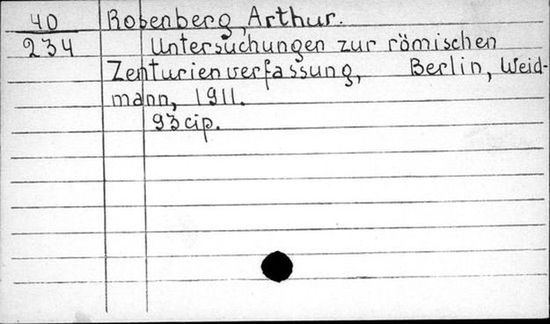 40 Rosenberg, Arthur.
234 Untersuchungen zur römischen
Zenturienverfassung, Berlin, Weid-
mann, 1911.
93 cip.